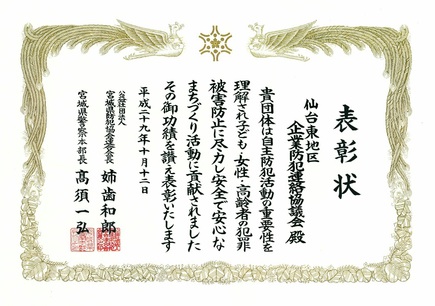 表彰状
仙台東地区
企業防犯連絡協議会 殿
貴団体は自主防犯活動の重要性を
理解され子ども・女性・高齢者の犯罪
被害防止に尽力し安全で安心な
まちづくり活動に貢献されました
その御功績を讃え表彰いたします
平成二十九年十月十二日
公益社団法人
宮城県防犯協会連合会長 姉歯和郎
宮城県警察本部長 高須一弘